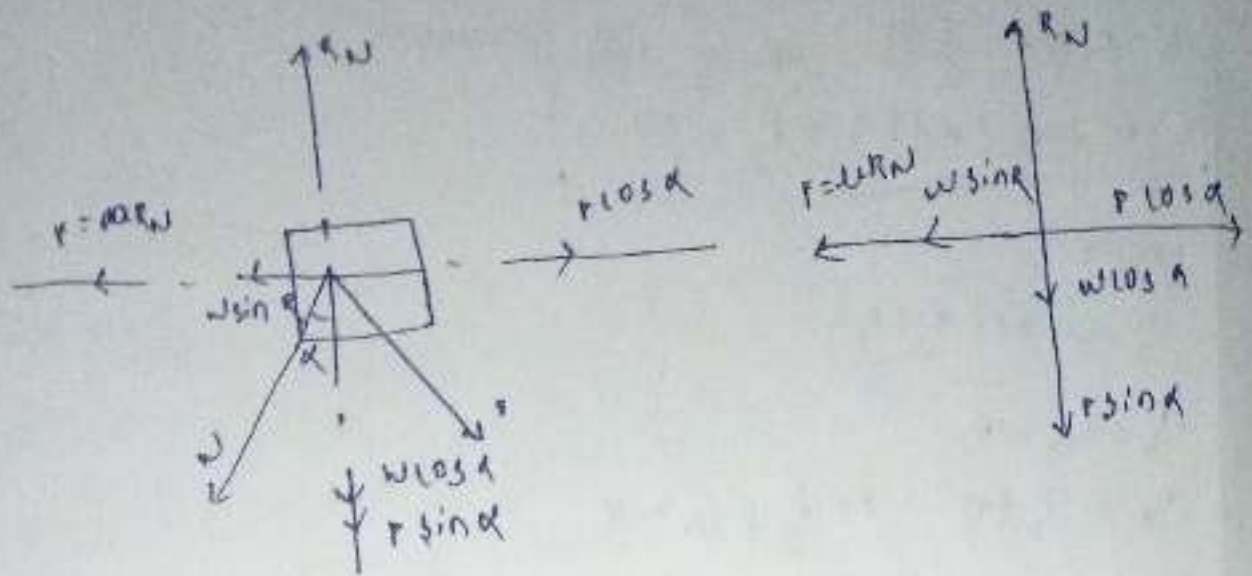 RN
F = μRN
P cos α
W sin α
α
W
P
W cos α
P sin α
RN
F = μRN
W sin α
P cos α
W cos α
P sin α